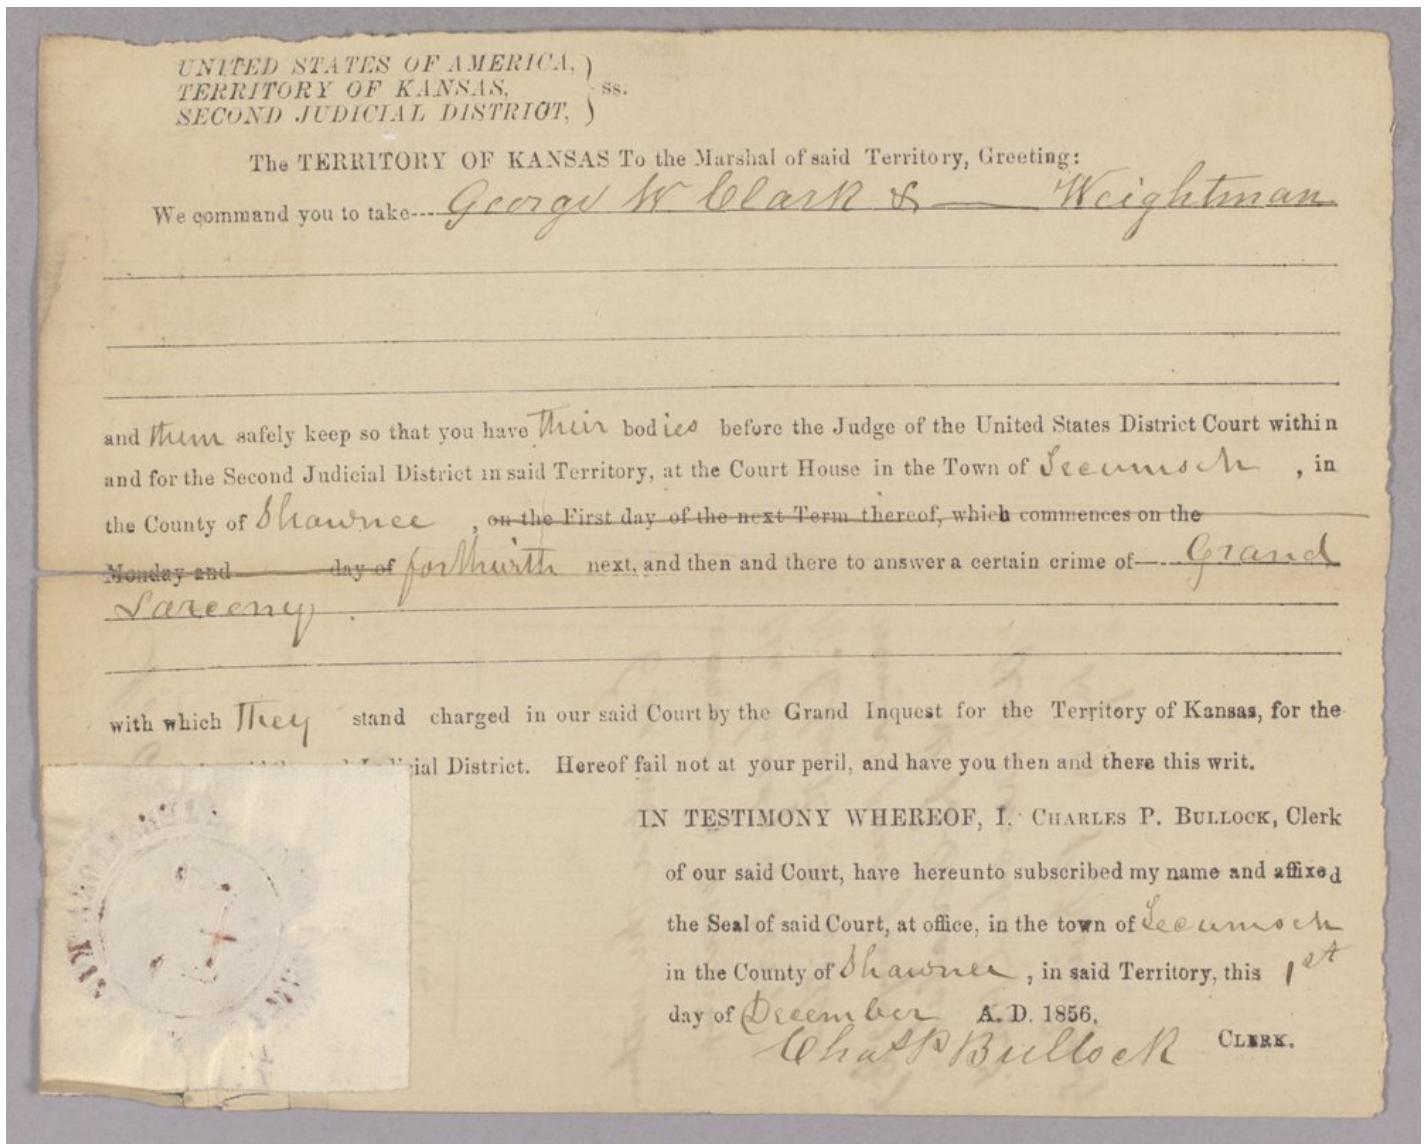 UNITED STATES OF AMERICA,
TERRITORY OF KANSAS, } ss.
SECOND JUDICIAL DISTRICT,
The TERRITORY OF KANSAS To the Marshal of said Territory, Greeting:
We command you to take---- George W Clark & —— Weightman
and them safely keep so that you have their bodies before the Judge of the United States District Court within
and for the Second Judicial District in said Territory, at the Court House in the Town of Tecumseh , in
the County of Shawnee , on the First day of the next Term thereof, which commences on the
Monday and day of forthwith next, and then and there to answer a certain crime of---- Grand
Larceny .
with which They stand charged in our said Court by the Grand Inquest for the Territory of Kansas, for the
District. Hereof fail not at your peril, and have you then and there this writ.
IN TESTIMONY WHEREOF, I, CHARLES P. BULLOCK, Clerk
of our said Court, have hereunto subscribed my name and affixed
the Seal of said Court, at office, in the town of Tecumseh
in the County of Shawnee , in said Territory, this 1st
day of December A. D. 1856.
Chas P Bullock CLERK.